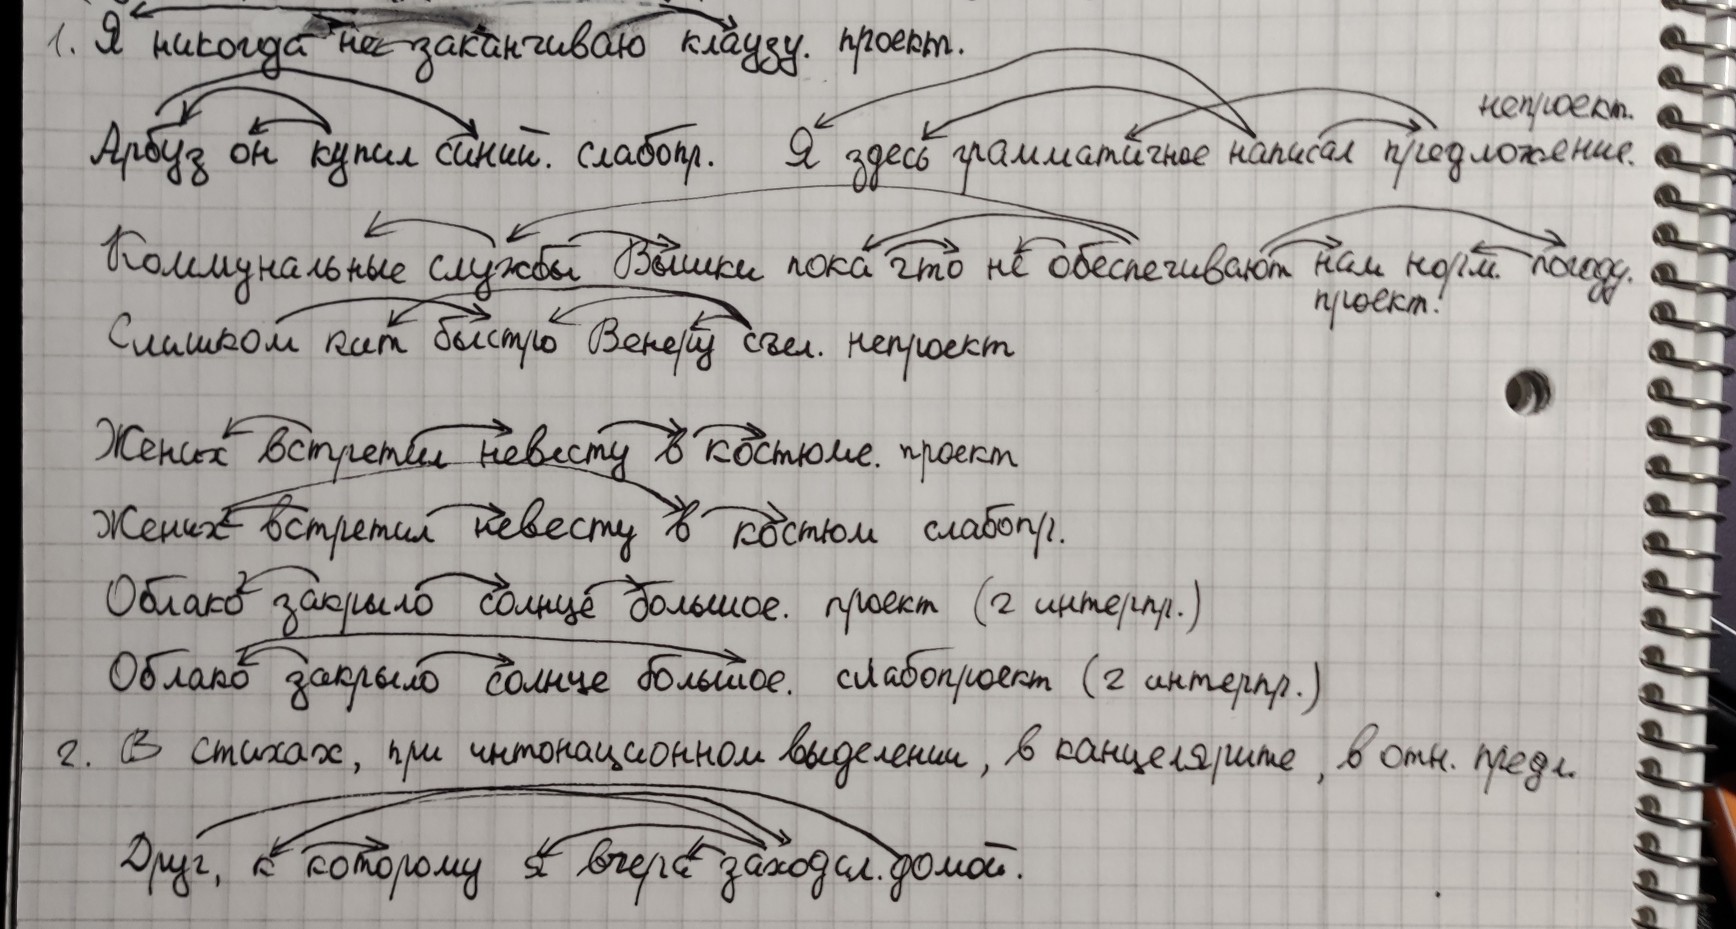 1. Я никогда не заканчиваю клаузу. проект.
непроект.
Арбуз он купил синий. слабопр. Я здесь грамматичное написал предложение.
Коммунальные службы Вышки пока что не обеспечивают нам норм. погоду.
проект.
Слишком кит быстро Венеру съел. непроект
Жених встретил невесту в костюме. проект
Жених встретил невесту в костюм слабопр.
Облако закрыло солнце большое. проект (2 интерпр.)
Облако закрыло солнце большое. слабопроект (2 интерпр.)
2. В стихах, при интонационном выделении, в канцелярите, в отн. предл.
Друг, к которому я вчера заходил. домой.